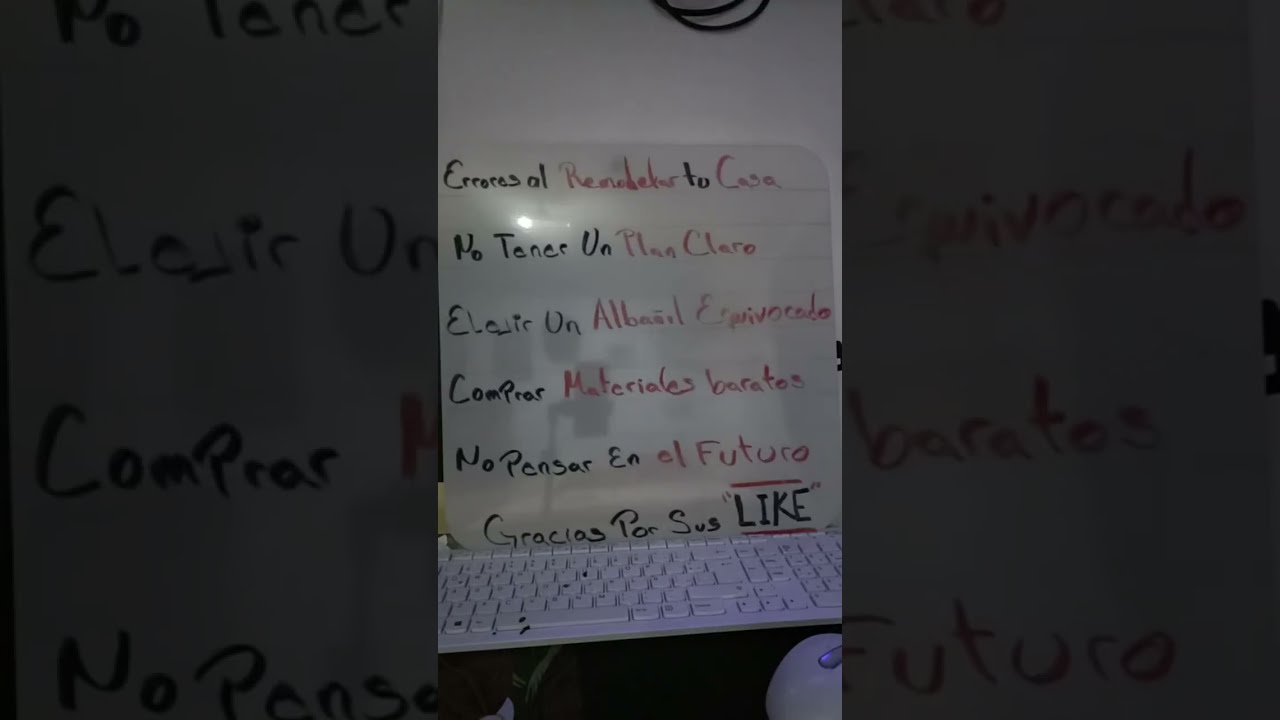 Errores al Remodelar tu Casa
No Tener Un Plan Claro
Elegir Un Albañil Equivocado
Comprar Materiales baratos
No Pensar En el Futuro
Gracias Por Sus "LIKE"